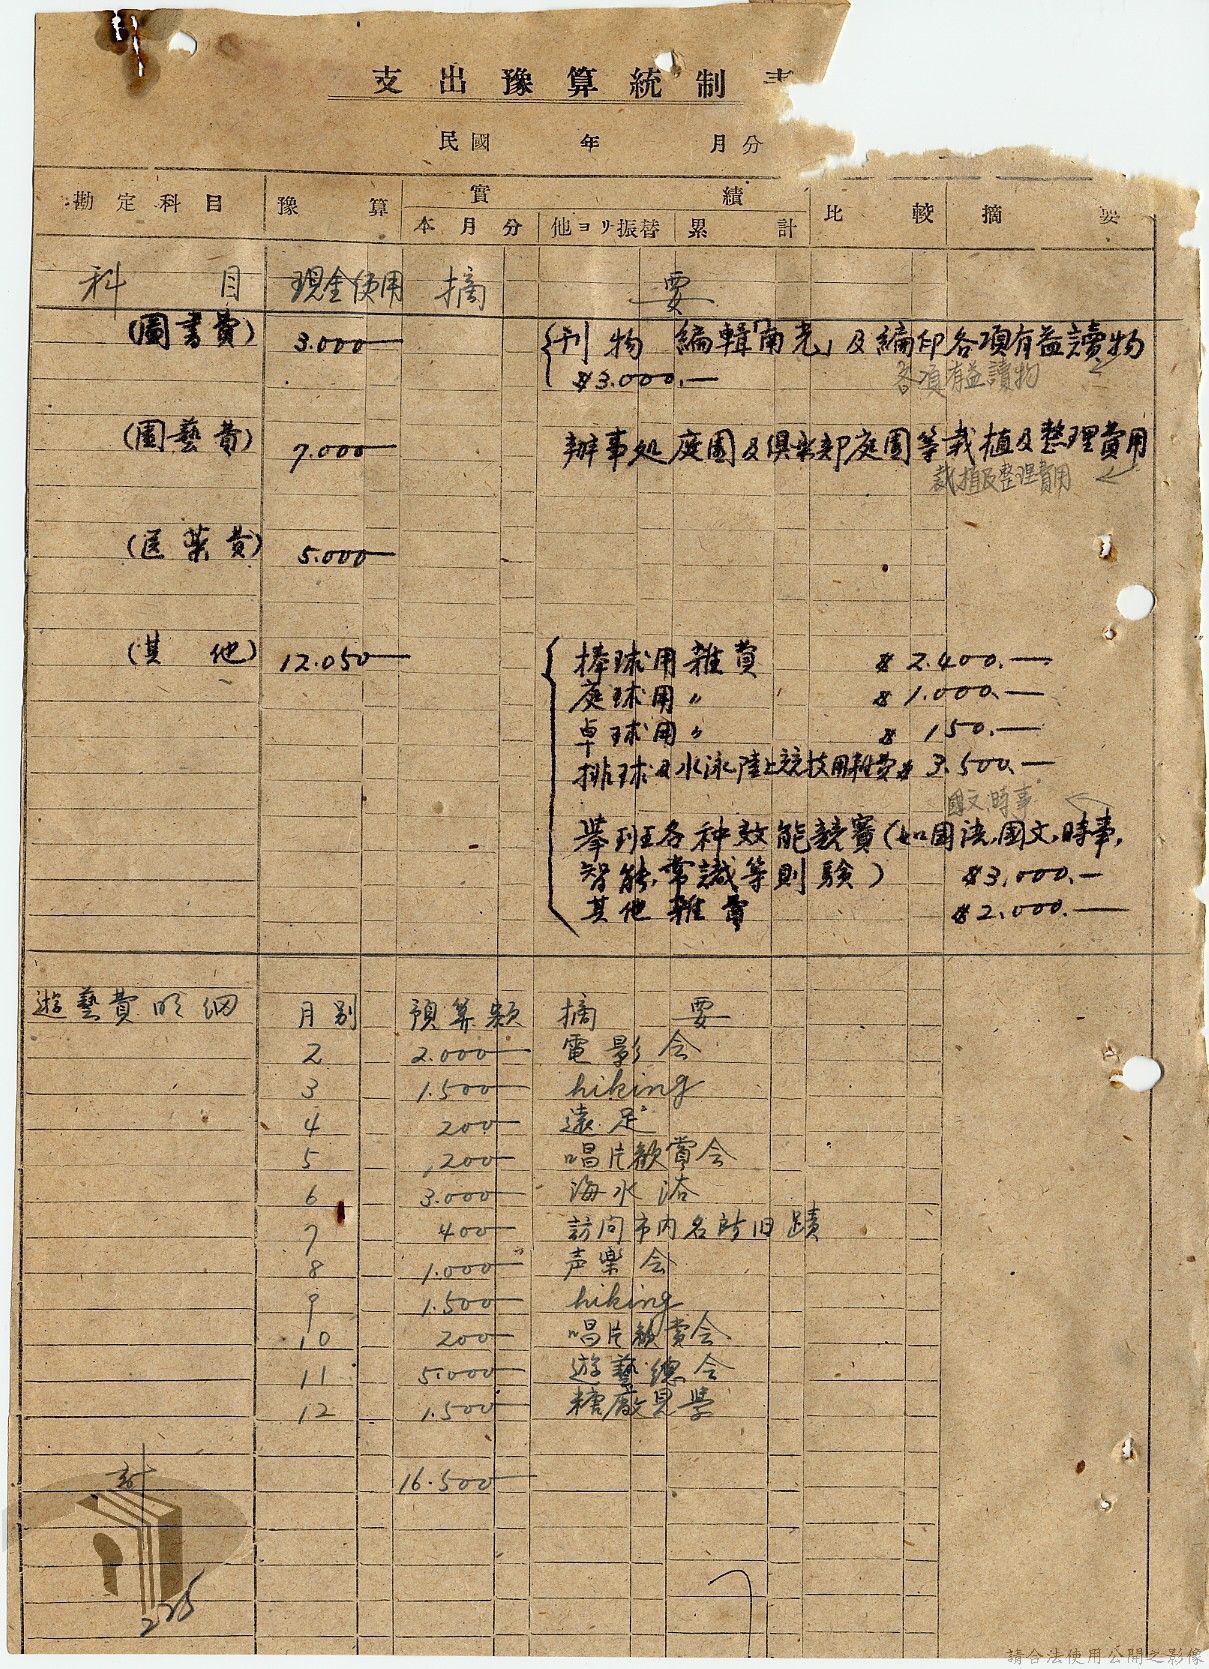 支出豫算統制
民國 年 月分
勘定科目 豫算 實績 比較 摘要
本月分 他ヨリ振替 累計
科目 現金使用 摘要
(圖書費) 3.000 刊物 編輯「南光」及編印各項有益讀物
$3.000.—
各項有益讀物
(園藝費) 7.000 辦事処庭園及俱樂部庭園等栽植及整理費用
栽植及整理費用
(医薬費) 5.000
(其他) 12.050 捧球用雜費 $2.400.—
庭球用〃 $1.000.—
卓球用〃 $150.—
排球及水泳陸上競技用雜費 $3.500.—
國文時事
舉班各种效能競賽(如国法,國文,時事,
智能,常識等則験) $3,000.—
其他雜費 $2.000.—
遊藝費明细 月別 預算額 摘要
2 2.000 電影会
3 1.500 hiking
4 200 遠足
5 ,200 唱片歓賞会
6 3.000 海水浴
7 400 訪问市内名所旧蹟
8 1.000 声樂会
9 1.500 hiking
10 200 唱片歓賞会
11 5.000 遊藝總会
12 1.500 糖廠見學
計 16.500
225
請合法使用公開之影像